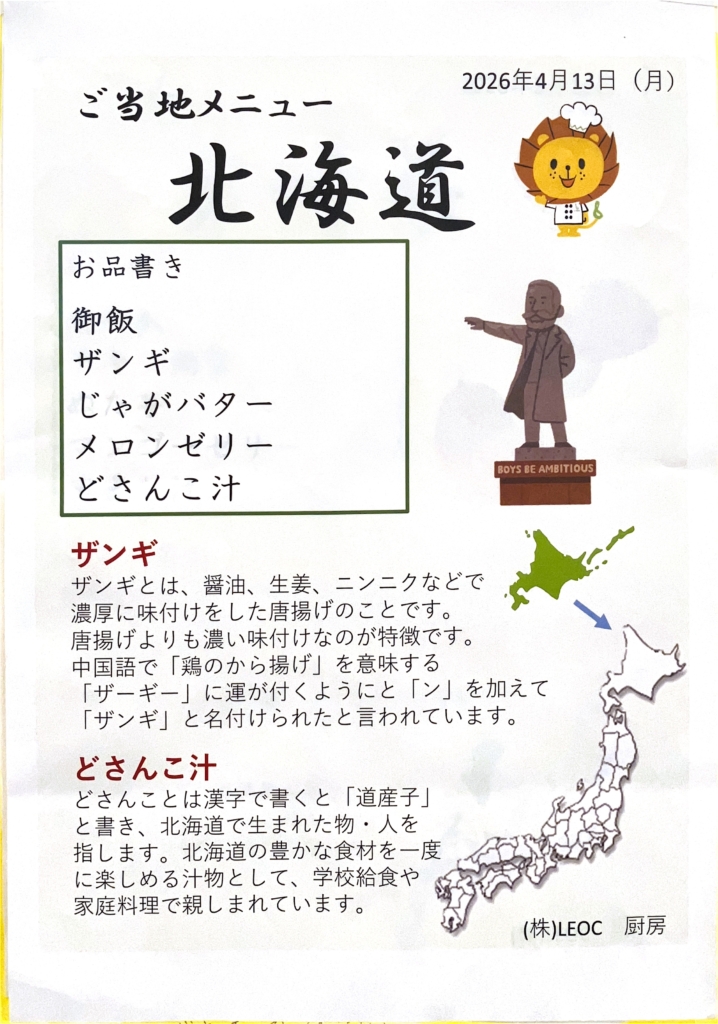 2026年4月13日（月）
ご当地メニュー
北海道
お品書き
御飯
ザンギ
じゃがバター
メロンゼリー
どさんこ汁
BOYS BE AMBITIOUS
ザンギ
ザンギとは、醤油、生姜、ニンニクなどで
濃厚に味付けをした唐揚げのことです。
唐揚げよりも濃い味付けなのが特徴です。
中国語で「鶏のから揚げ」を意味する
「ザーギー」に運が付くようにと「ン」を加えて
「ザンギ」と名付けられたと言われています。
どさんこ汁
どさんことは漢字で書くと「道産子」
と書き、北海道で生まれた物・人を
指します。北海道の豊かな食材を一度
に楽しめる汁物として、学校給食や
家庭料理で親しまれています。
(株)LEOC　厨房